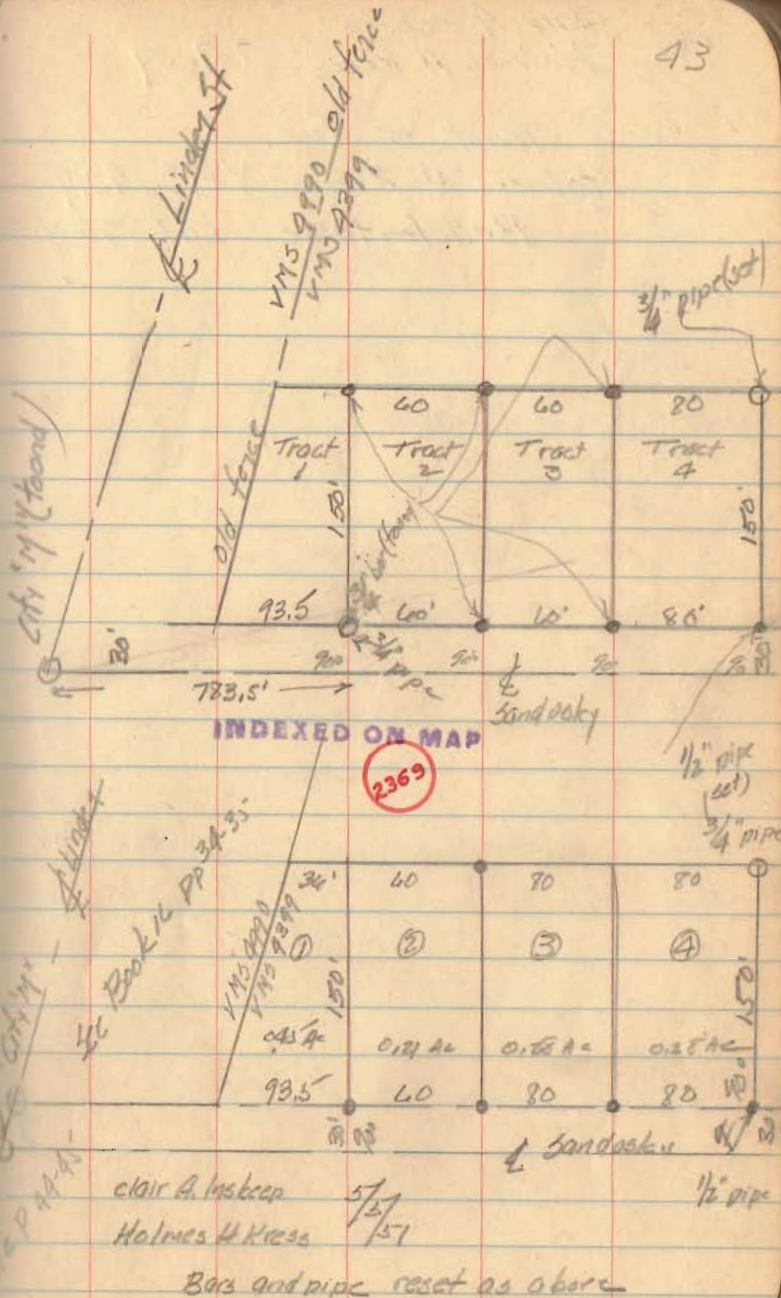 43
℄ Linden St
VMS 9990 old fence
VMS 9399
3/4" pipe (set)
City "M" (found)
60 60 80
Tract 1
Tract 2
Tract 3
Tract 4
old fence
150'
150'
bar (found)
93.5 60' 60' 80'
3/4" pipe
30'
90° 90° 90° 90° 30'
783.5'
℄ Sandusky
INDEXED ON MAP
2369
1/2" pipe
(set)
3/4" pipe
℄ Linden
Book 16 Pp 34-35
City "M"
VMS 9990
VMS 9399
36' 60 80 80
① ② ③ ④
150'
150'
0.21 Ac 0.28 Ac 0.28 Ac
93.5 60 80 80
30' 90° 90° 30'
℄ Sandusky
P 44-45
1/2" pipe
Clair A. Inskeep
Holmes H Kress
5/3/51
Bars and pipe reset as above